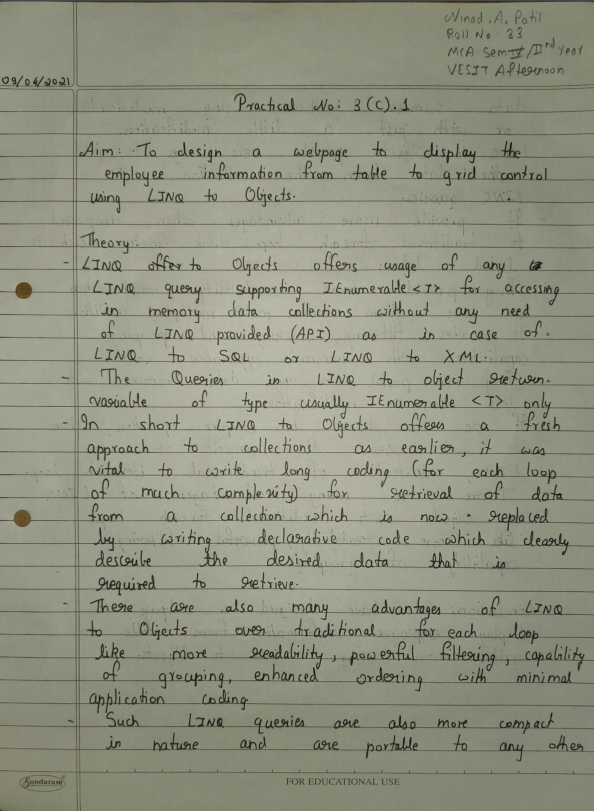 Ninad . A. Patil
Roll No : 33
MCA Sem IV / IInd Year
VESIT Afternoon
09/04/2021
Practical No: 3 (C) . 1
Aim: To design a webpage to display the
employee information from table to grid control
using LINQ to Objects.
Theory:
- LINQ offer to Objects offers usage of any
LINQ query supporting IEnumerable <T> for accessing
in memory data collections without any need
of LINQ provided (API) as in case of.
LINQ to SQL or LINQ to XML.
- The Queries in LINQ to object return.
variable of type usually IEnumerable <T> only
- In short LINQ to Objects offers a fresh
approach to collections as earlier, it was
vital to write long coding (for each loop
of much complexity) for retrieval of data
from a collection which is now . replaced
by writing declarative code which is clearly
describe the desired data that is
required to retrieve.
- There are also many advantages of LINQ
to Objects over traditional for each loop
like more readability, powerful filtering, capability
of grouping, enhanced ordering with minimal
application coding
- Such LINQ queries are also more compact
in nature and are portable to any other
Sundaram
FOR EDUCATIONAL USE